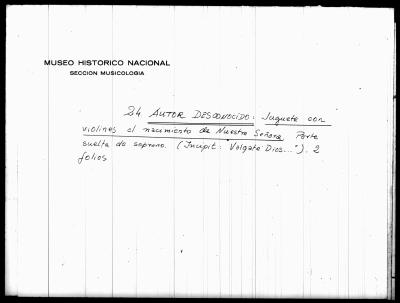 MUSEO HISTORICO NACIONAL
SECCION MUSICOLOGIA
24 AUTOR DESCONOCIDO: Juguete con
violines al nacimiento de Nuestra Señora. Parte
suelta de soprano. (Incipit: "Valgate Dios..."). 2
folios